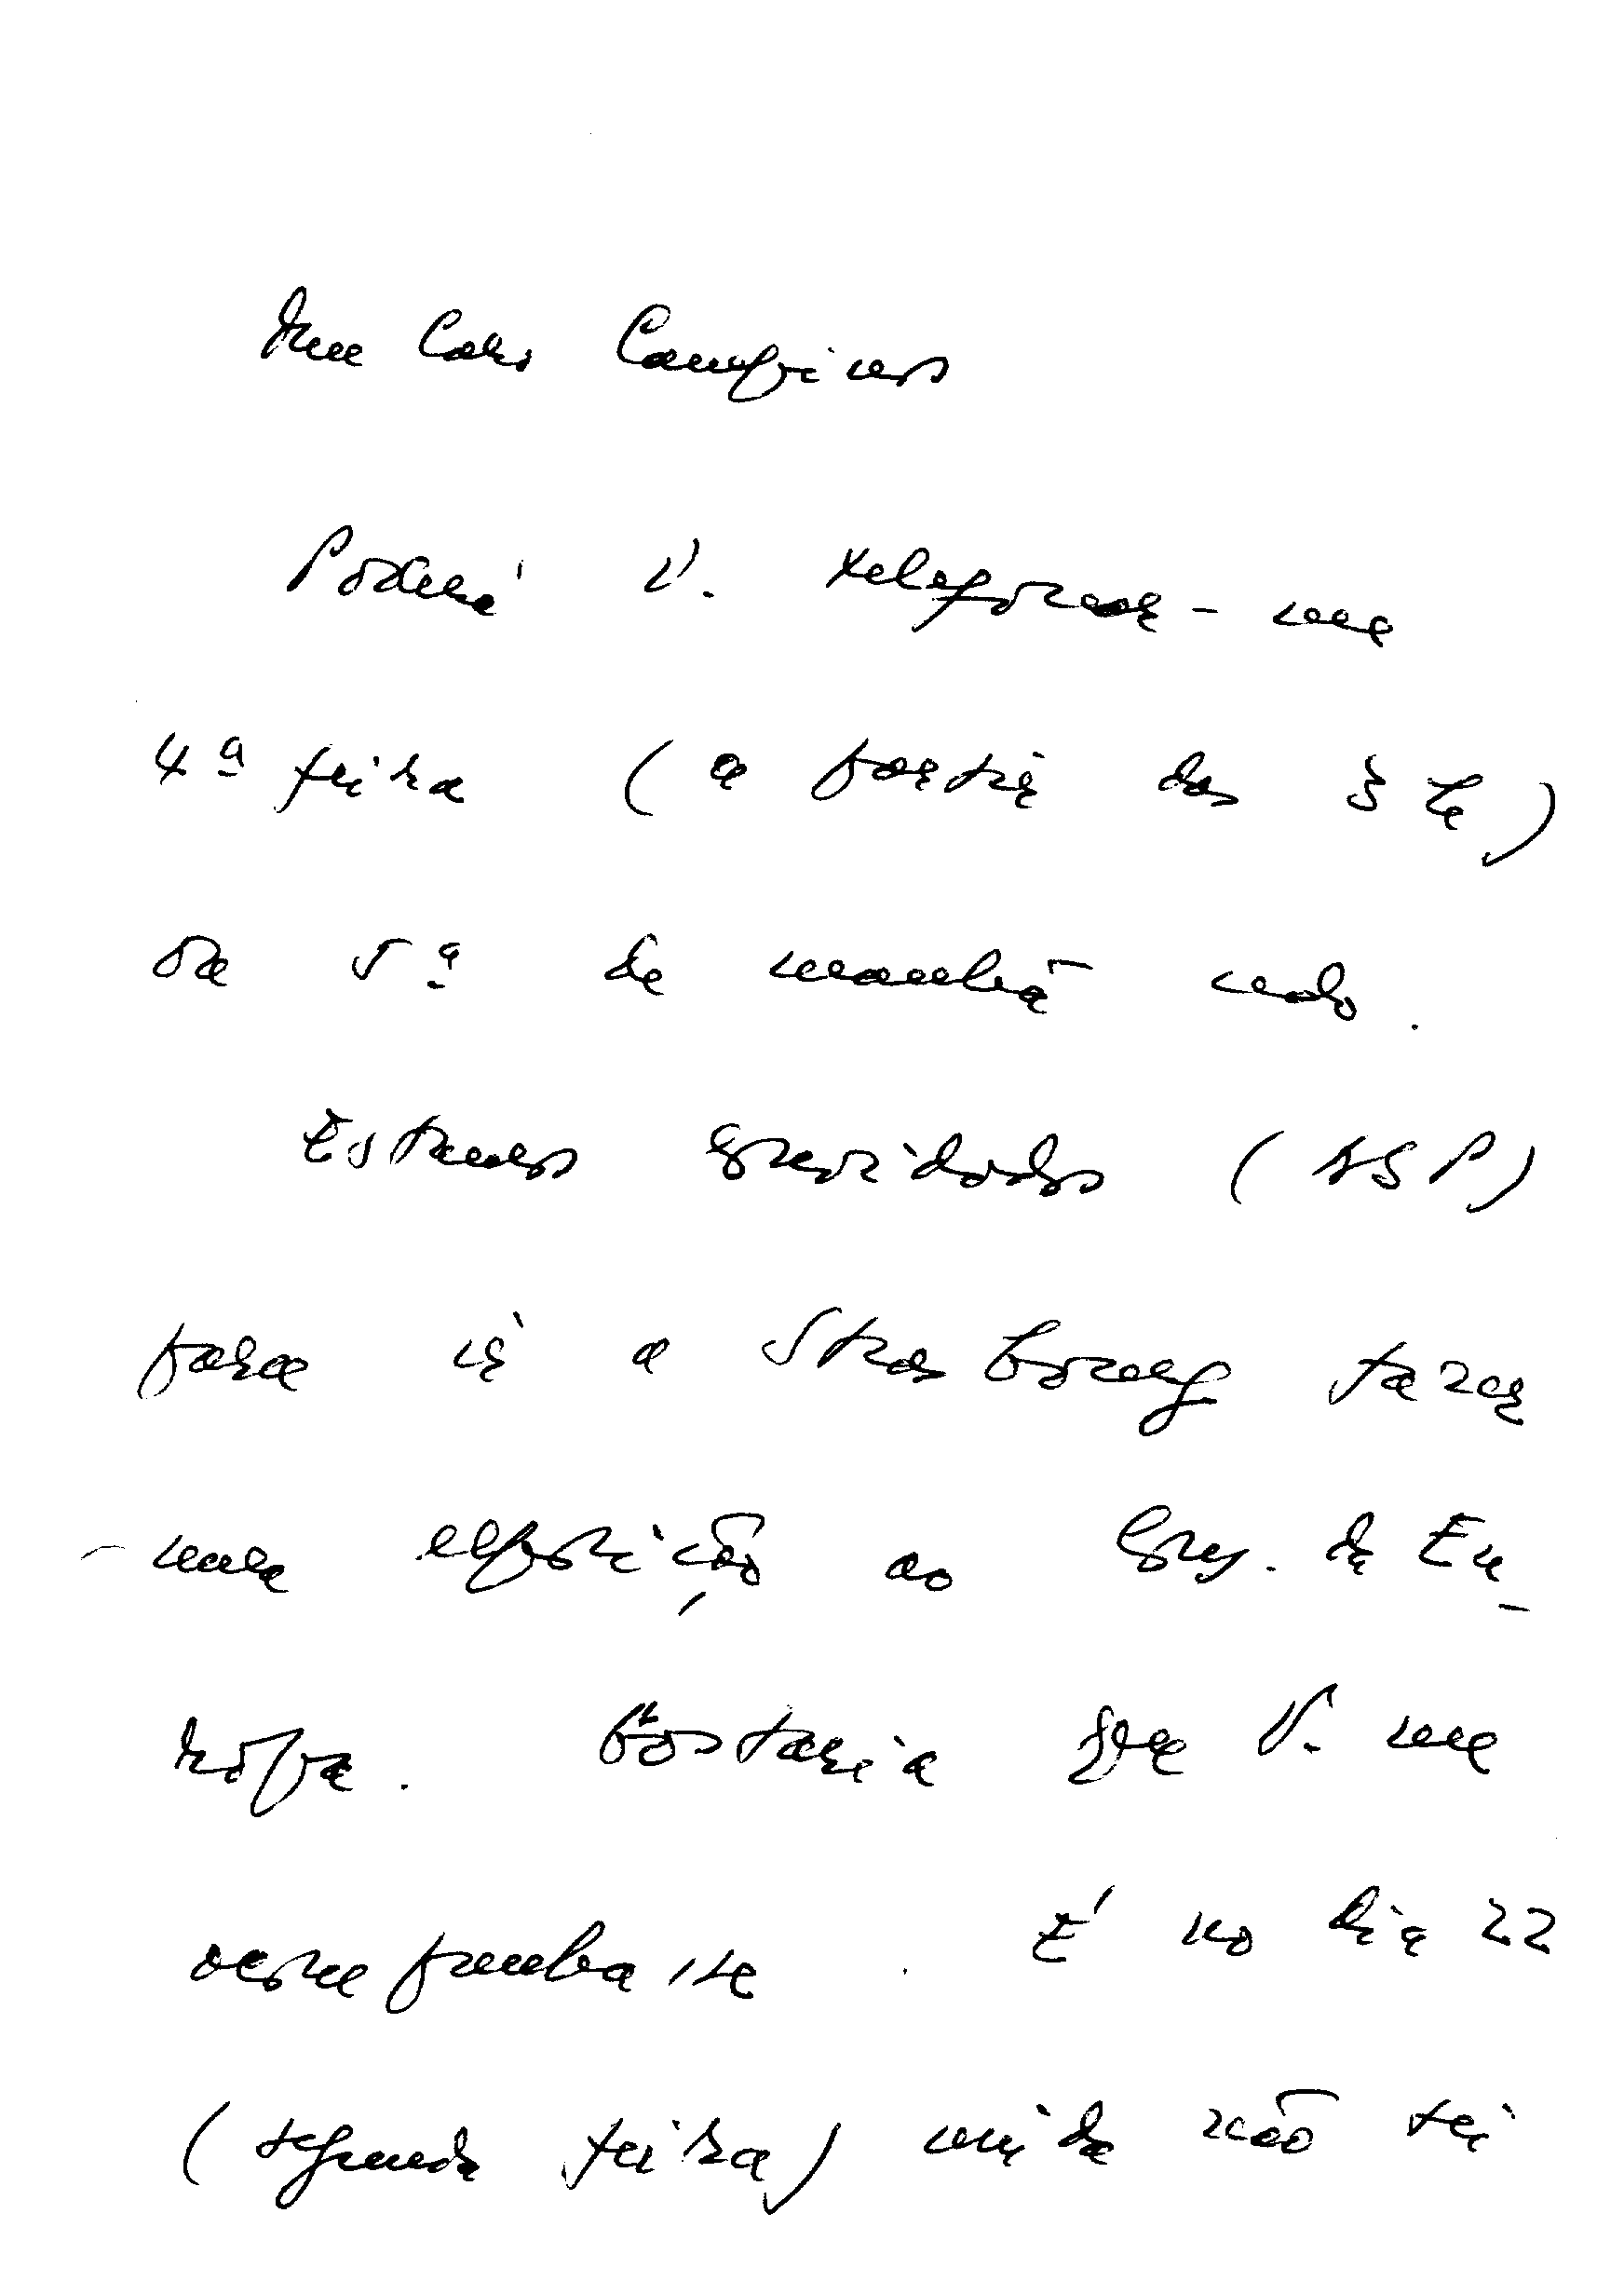 Meu Caro Campinos
Poderá V. telefonar-me
4ª feira (a partir das 3 h)
ou 5ª de manhã cedo.
Estamos convidados (ASP)
para ir a Strasbourg fazer
uma exposição ao Cons. da Eu-
ropa. Gostaria que V. me
acompanhasse. É no dia 22
(segunda feira) ainda não sei